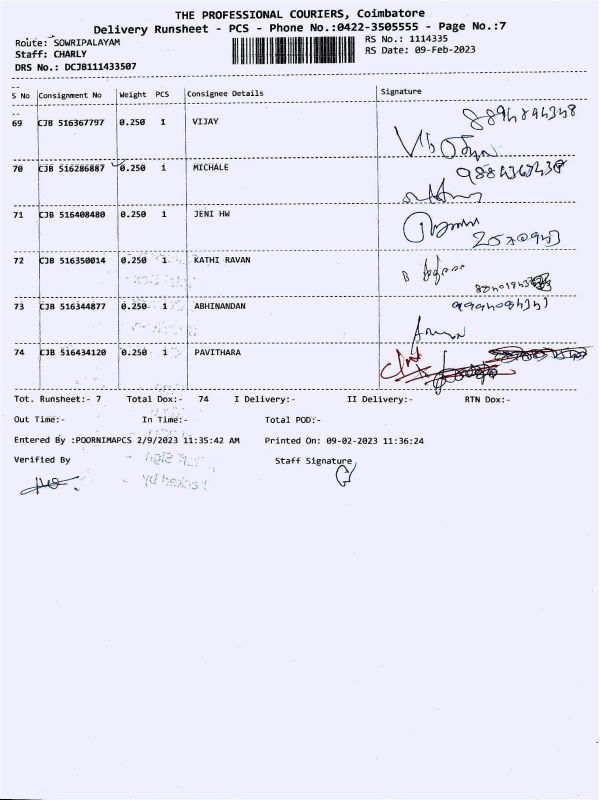 THE PROFESSIONAL COURIERS, Coimbatore
Delivery Runsheet - PCS - Phone No.:0422-3505555 - Page No.:7
Route: SOWRIPALAYAM
RS No.: 1114335
Staff: CHARLY
RS Date: 09-Feb-2023
DRS No.: DCJB111433507
S No Consignment No Weight PCS Consignee Details Signature
69 CJB 516367797 0.250 1 VIJAY
70 CJB 516286887 0.250 1 MICHALE
71 CJB 516408480 0.250 1 JENI HW
72 CJB 516350014 0.250 1 KATHI RAVAN
73 CJB 516344877 0.250 1 ABHINANDAN
74 CJB 516434120 0.250 1 PAVITHARA
Tot. Runsheet:- 7 Total Dox:- 74 I Delivery:- II Delivery:- RTN Dox:-
Out Time:- In Time:- Total POD:-
Entered By :POORNIMAPCS 2/9/2023 11:35:42 AM Printed On: 09-02-2023 11:36:24
Verified By Staff Signature